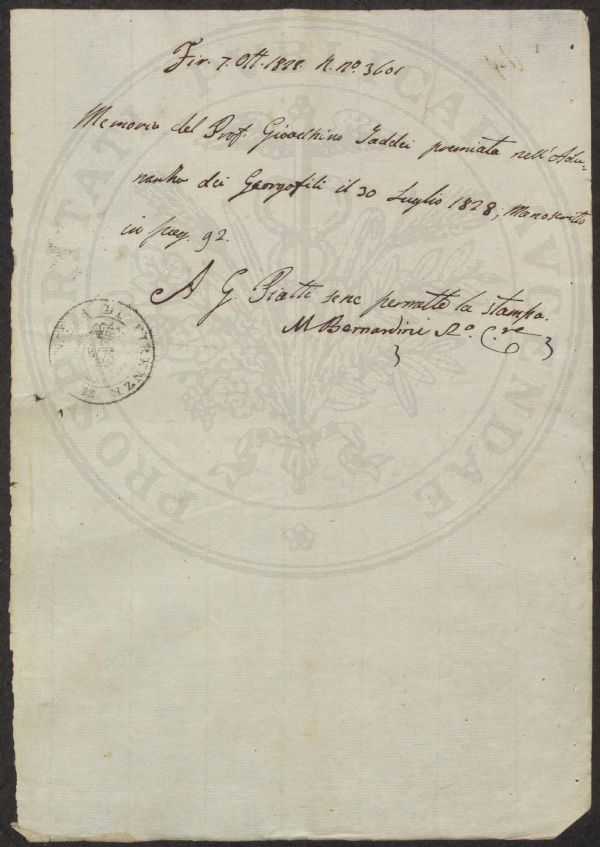 Fir. 7. Ott. 1828. N. no. 3601
Memoria del Prof. Gioacchino Taddei premiata nell'Adu-
nanza dei Georgofili il 30 Luglio 1828, Manoscritto
in pag. 92.
A G. Piatti se ne permette la stampa.
M Bernardini R.o C.re
PROSPERITATI PUBLICAE AUGENDAE
DI FIRENZE
1